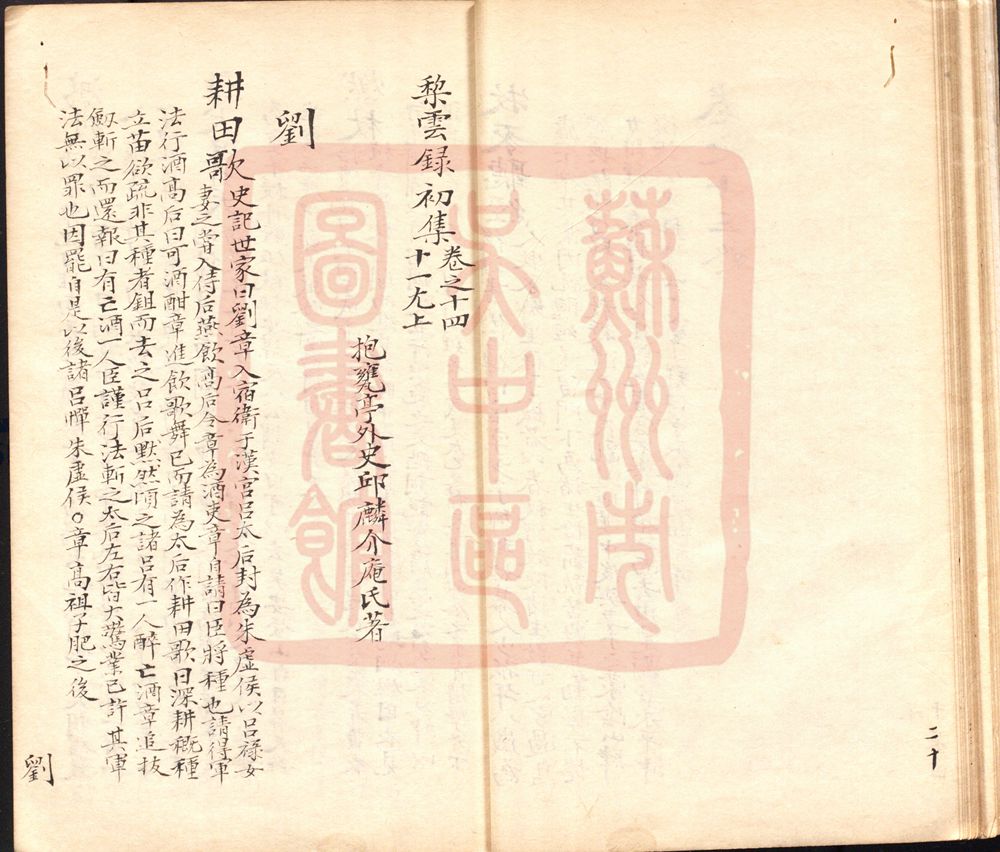 二十
梨雲録初集 卷之十四
十一尤上
抱甕亭外史邱麟介庵氏著
劉
耕田歌 史記世家曰劉章入宿衛于漢宮呂太后封為朱虚侯以呂禄女
妻之嘗入侍后燕飲髙后令章為酒吏章自請曰臣將種也請得軍
法行酒髙后曰可酒酣章進飲歌舞已而請為太后作耕田歌曰深耕穊種
立苗欲疏非其種者鉏而去之呂后黙然頃之諸呂有一人醉亡酒章追拔
劔斬之而還報曰有亡酒一人臣謹行法斬之太后左右皆大驚業已許其軍
法無以罪也因罷自是以後諸呂憚朱虚侯○章髙祖子肥之後
劉
蘇州市
吳中區
圖書館